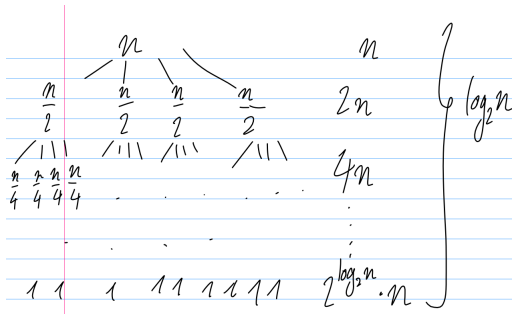 n n
n/2 n/2 n/2 n/2 2n log₂n
n/4 n/4 n/4 n/4 . . . . . 4n
. . . .
1 1 1 1 1 1 1 1 1 2^{log₂n} · n